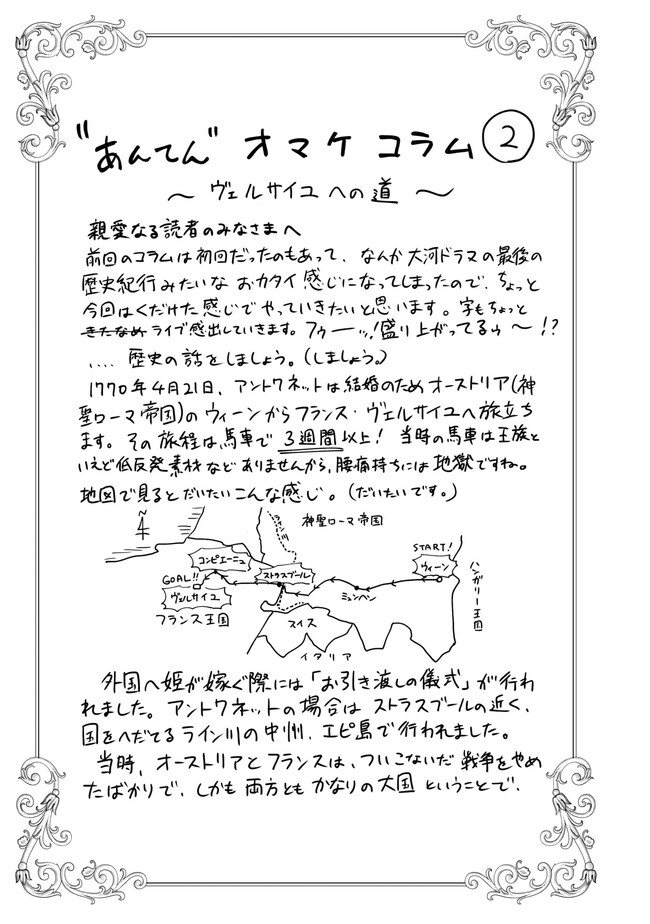 "あんてん" オマケ コラム ②
〜 ヴェルサイユ への 道 〜
親愛なる読者のみなさまへ
前回のコラムは初回だったのもあって、なんか大河ドラマの最後の
歴史紀行みたいな おカタイ 感じになってしまったので、ちょっと
今回はくだけた感じでやっていきたいと思います。字もちょっと
きたなめ ライブ感出していきます。フゥーッ!盛り上がってるゥ〜!?
.... 歴史の話をしましょう。(しましょう。)
1770年4月21日、アントワネットは結婚のためオーストリア(神
聖ローマ帝国)のウィーンからフランス・ヴェルサイユへ旅立ち
ます。その旅程は馬車で 3週間以上! 当時の馬車は王族と
いえど低反発素材などありませんから、腰痛持ちには地獄ですね。
地図で見るとだいたいこんな感じ。(だいたいです。)
N
ライン川
神聖ローマ帝国
START!
コンピエーニュ
ストラスブール
ウィーン
GOAL!!
ヴェルサイユ
ミュンヘン
ハンガリー王国
フランス王国
スイス
イタリア
外国へ姫が嫁ぐ際には「お引き渡しの儀式」が行わ
れました。アントワネットの場合は ストラスブールの近く、
国をへだてる ライン川の中州、エピ島で行われました。
当時、オーストリアとフランスは、ついこないだ戦争をやめ
たばかりで、しかも両方ともかなりの大国ということで、